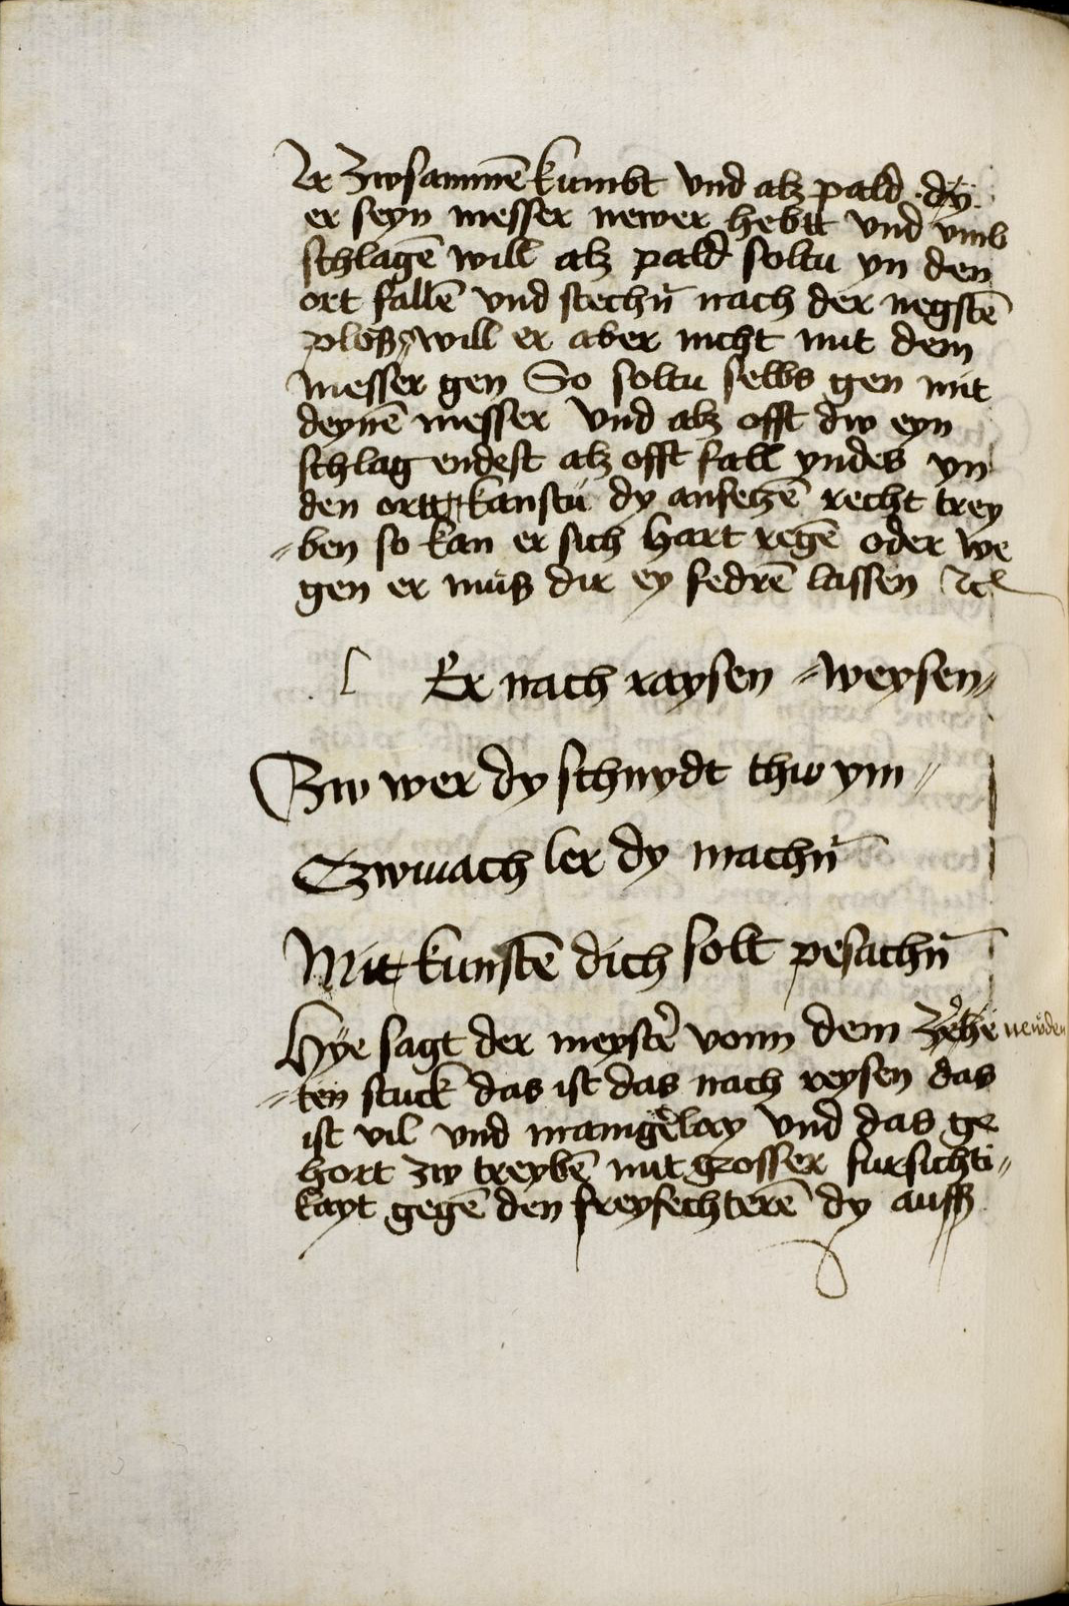 er zwsammē kumbt vnd alz pald dÿ
er seyn messer newer hebtt vnd vmb
schlagē will alz pald soltu yn den
ort fallē vnd stechn̄ nach der negstē
plöß will er aber nicht mit dem
messer gen So soltu selbs gen mit
deynē messer vnd alz offt dw eyn
schlag endest alz offt fall yndes yn
den ortt kanstu dy anseczē recht trey
=ben so kan er sich hart regē oder we
gen er muß dir ey fedrē lassen Etc
l Er nach raysen =weysen=
Zw wer dy schnydt thw ym=
Czwmach ler dy machn̄
Mit kunstē dich solt pesachn̄
Hÿe sagt der meystr̄ vonn dem zehē newden
=ten stuck das ist das nach reysen das
ist vil vnd manigerlay vnd das ge
hort zw treybē mit grosser fursichti=
kayt gegē den freyfechterē dy auß